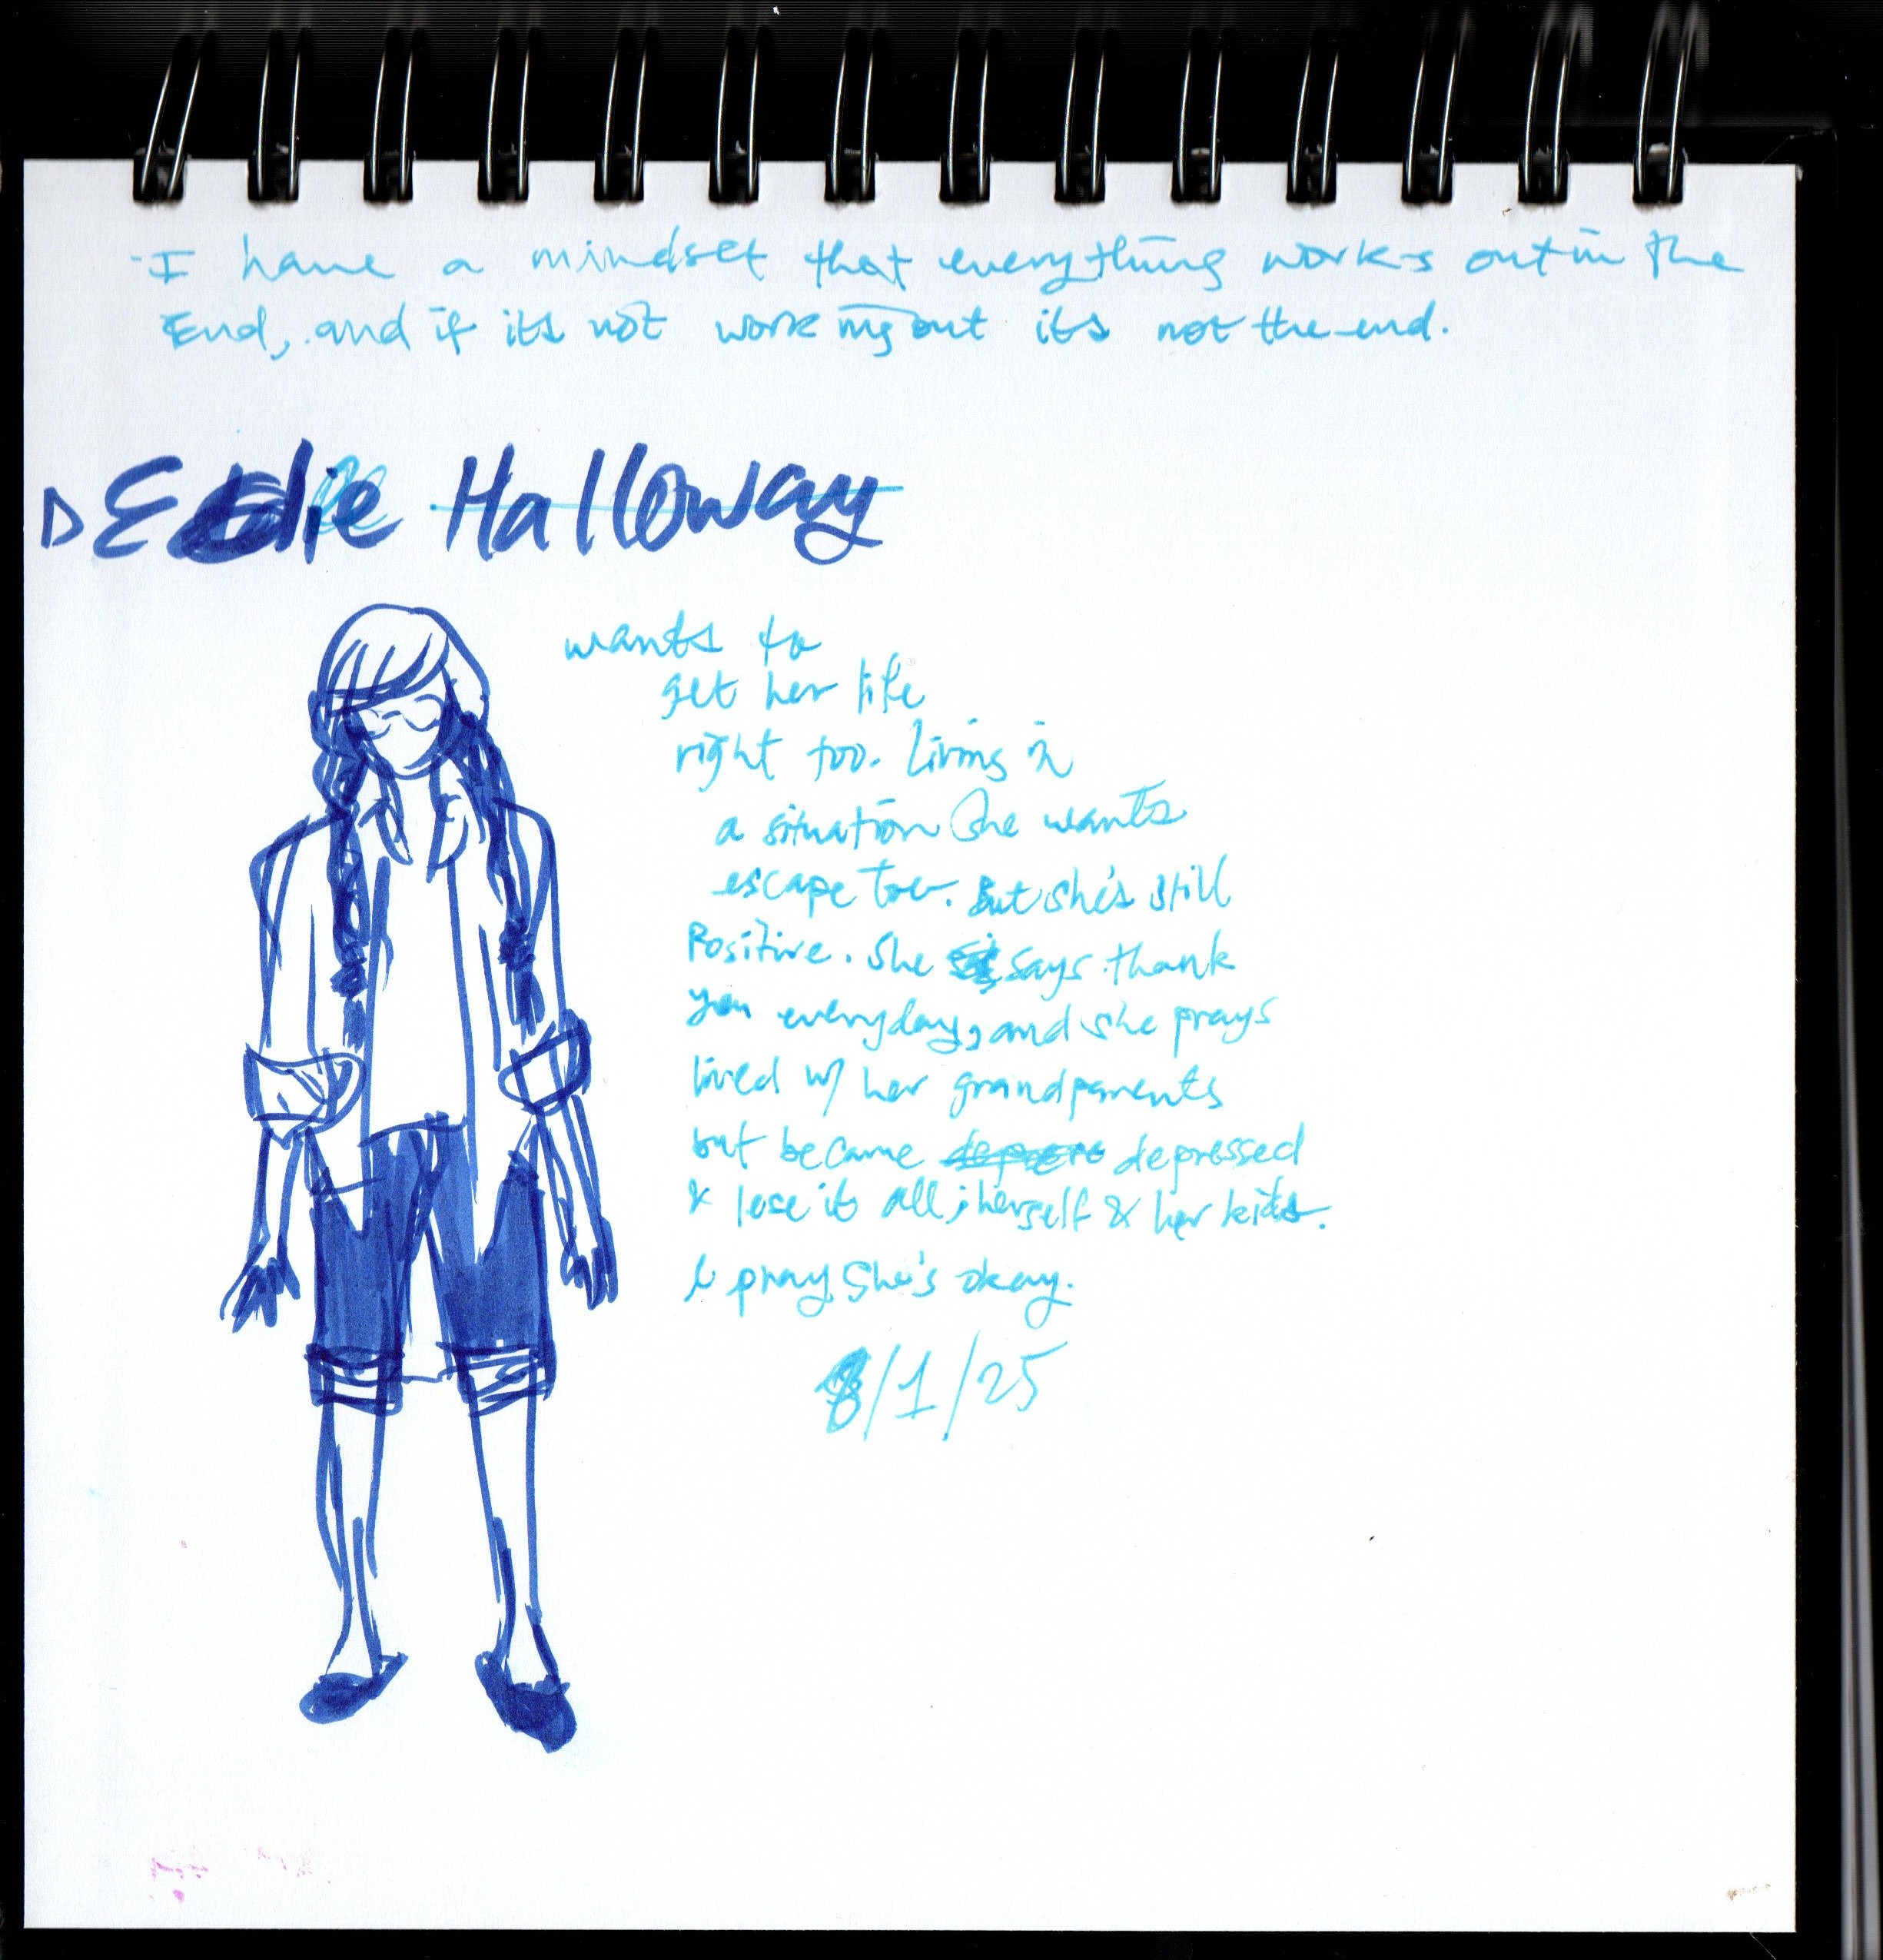 I have a mindset that everything works out in the
End, and if its not working out its not the end.
Eddie Halloway
wants to
get her life
right too. Living in
a situation She wants
escape too. But she's still
Positive. She says thank
you everyday, and she prays
lived w/ her grandparents
but became depressed
& lose it all; herself & her kids.
I pray She's okay.
8/1/25